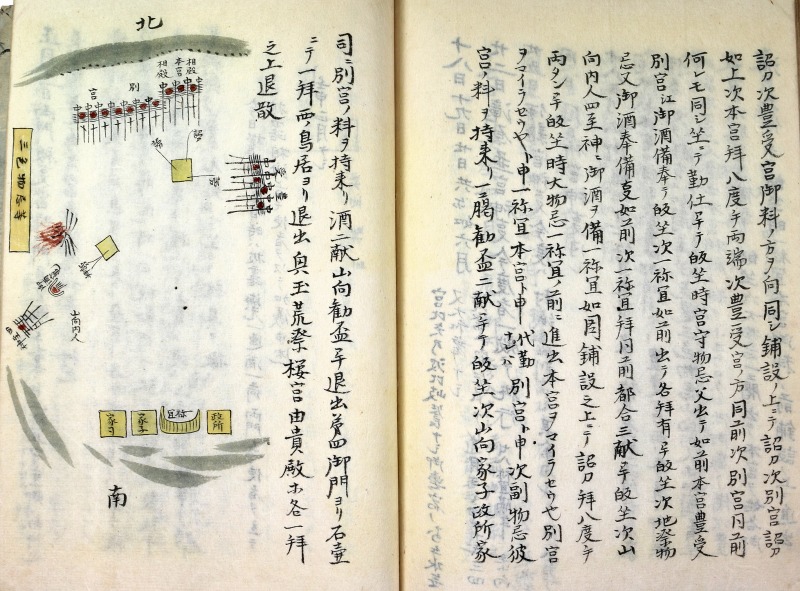 詔刀次豊受宮御料ノ方ヲ向同シ鋪設ノ上ニテ詔刀次別宮詔刀
如上次本宮拜八度テ両端次豊受宮ノ方同前次別宮同前
何レモ同シ坐ニテ勤仕畢テ皈坐時宮守物忌父出テ如前本宮豊受
別宮江御酒備奉テ皈坐次一祢宜如前出テ各拜有畢皈坐次地祭物
忌又御酒奉備支如前次一祢宜拜同前都合三献畢テ皈坐次山
向内人四至神ニ御酒ヲ備一祢宜如図鋪設之上ニテ詔刀拜八度テ
両タン畢テ皈坐時大物忌一祢宜ノ前ニ進出本宮ヲマイラセウや別宮
ヲマイラセウヤト申一祢宜本宮ト申代勤ナレハ別宮ト申次副物忌彼
宮ノ料ヲ持来リ一二臈勧盃二献畢テ皈坐次山向家子政所家
司ニ別宮ノ料ヲ持来リ酒二献山向勧盃畢退出第四御門ヨリ石壺
ニテ一拜西ノ鳥居ヨリ退出奥玉荒祭桜宮由貴殿ホ各一拜
之上退散
北
相殿
本宮
相殿
別
宮
詔刀
豊受宮
三色物忌等
山向内人
政所
祢宜
家子
家司
南